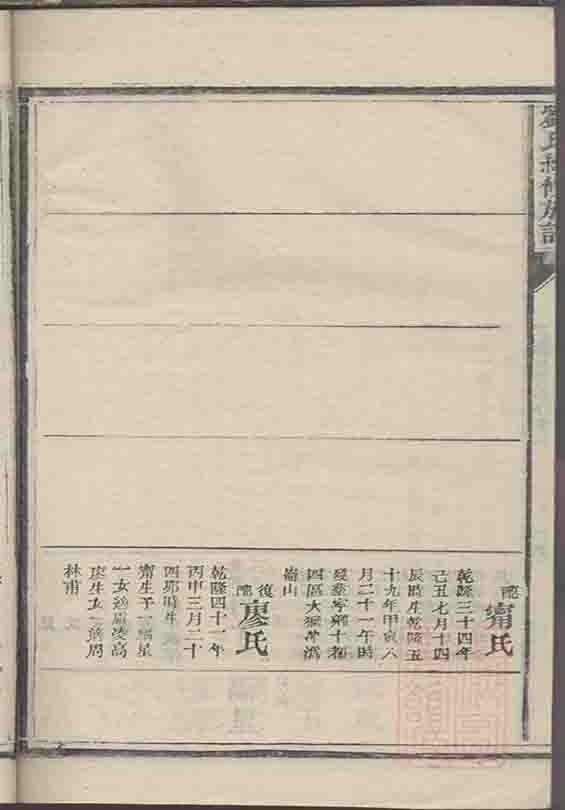 氏續修族譜
配甯氏
乾隆三十四年
己丑七月十四
辰時生乾隆五
十九年甲寅八
月二十一午時
歿葬寧鄉十都
四區大
山
復配廖氏
乾隆四十一年
丙申三月二十
四卯時生
甯生子一星
一女適凌高
廖生女一適周
林甫